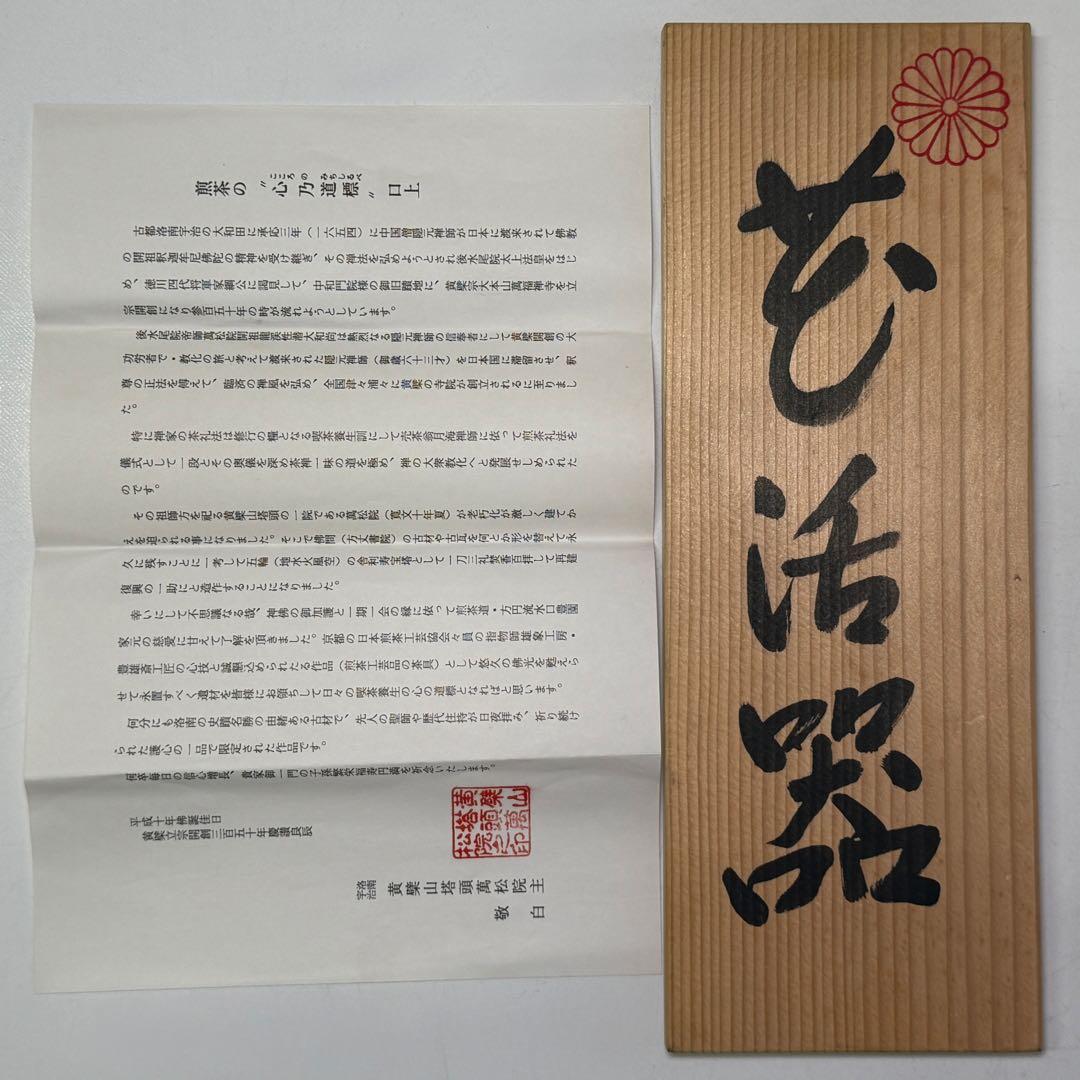 煎茶の〝心乃道標〟口上
こころの みちしるべ
古都洛南宇治の大和田に承応三年(一六五四)に中国僧隠元禅師が日本に渡来されて佛教
の開祖釈迦牟尼佛陀の精神を受け継ぎ、その禅法を弘めようとされ後水尾院太上法皇をはじ
め、徳川四代将軍家綱公に謁見して、中和門院様の御旧蹟地に、黄檗宗大本山萬福禅寺を立
宗開創になり参百五十年の時が流れようとしています。
後水尾院帝師萬松院開祖龍溪性潜大和尚は熱烈なる隠元禅師の信奉者にして黄檗開創の大
功労者で・教化の旅と考えて渡来された隠元禅師(御歳六十三才)を日本国に滞留させ、釈
尊の正法を傳えて、臨済の禅風を弘め、全国津々浦々に黄檗の寺院が創立されるに至りまし
た。
特に禅家の茶礼法は修行の糧となる喫茶養生訓にして売茶翁月海禅師に依って煎茶礼法を
儀式として一段とその奥儀を深め茶禅一味の道を極め、禅の大衆教化へと発展せしめられた
のです。
その祖師方を祀る黄檗山塔頭の一院である萬松院(寛文十年夏)が老朽化が激しく建てか
えを迫られる事になりました。そこで佛間(方丈書院)の古材や古瓦を何とか形を替えて永
久に残すことに一考して五輪(地水火風空)の舎利寿宝塔として一刀三礼焚香百拝して再建
復興の一助にと造作することになりました。
幸いにして不思議なる哉、神佛の御加護と一期一会の縁に依って煎茶道・方円流水口豊園
家元の慈愛に甘えて了解を頂きました。京都の日本煎茶工芸協会々員の指物師雄象工房・
豊雄斎工匠の心技と誠懇込められたる作品(煎茶工芸品の茶具)として悠久の佛光を甦えら
せて永置すべく遺材を皆様にお頒ちして日々の喫茶養生の心の道標となればと思います。
何分にも洛南の史蹟名勝の由緒ある古材で、先人の聖師や歴代住持が日夜拝み、祈り続け
られた護心の一品で限定された作品です。
何卒毎日の信心増長、貴家御一門の子孫繁栄福寿円満を祈念いたします。
平成十年佛誕佳日
黄檗立宗開創三百五十年慶讃良辰
洛南
宇治
黄檗山塔頭萬松院主
敬白
黄檗山
塔頭萬
松院之印
花活器